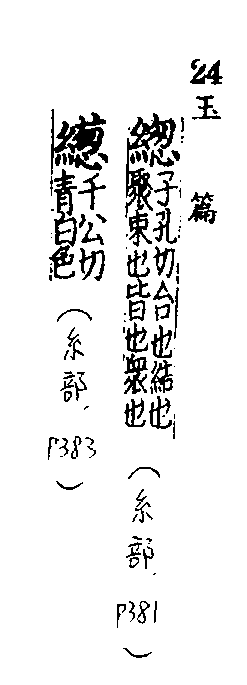 24 玉篇
緫子孔切合也結也
聚束也皆也衆也(糸部,P381)
繱千公切
青白色(糸部,P383)